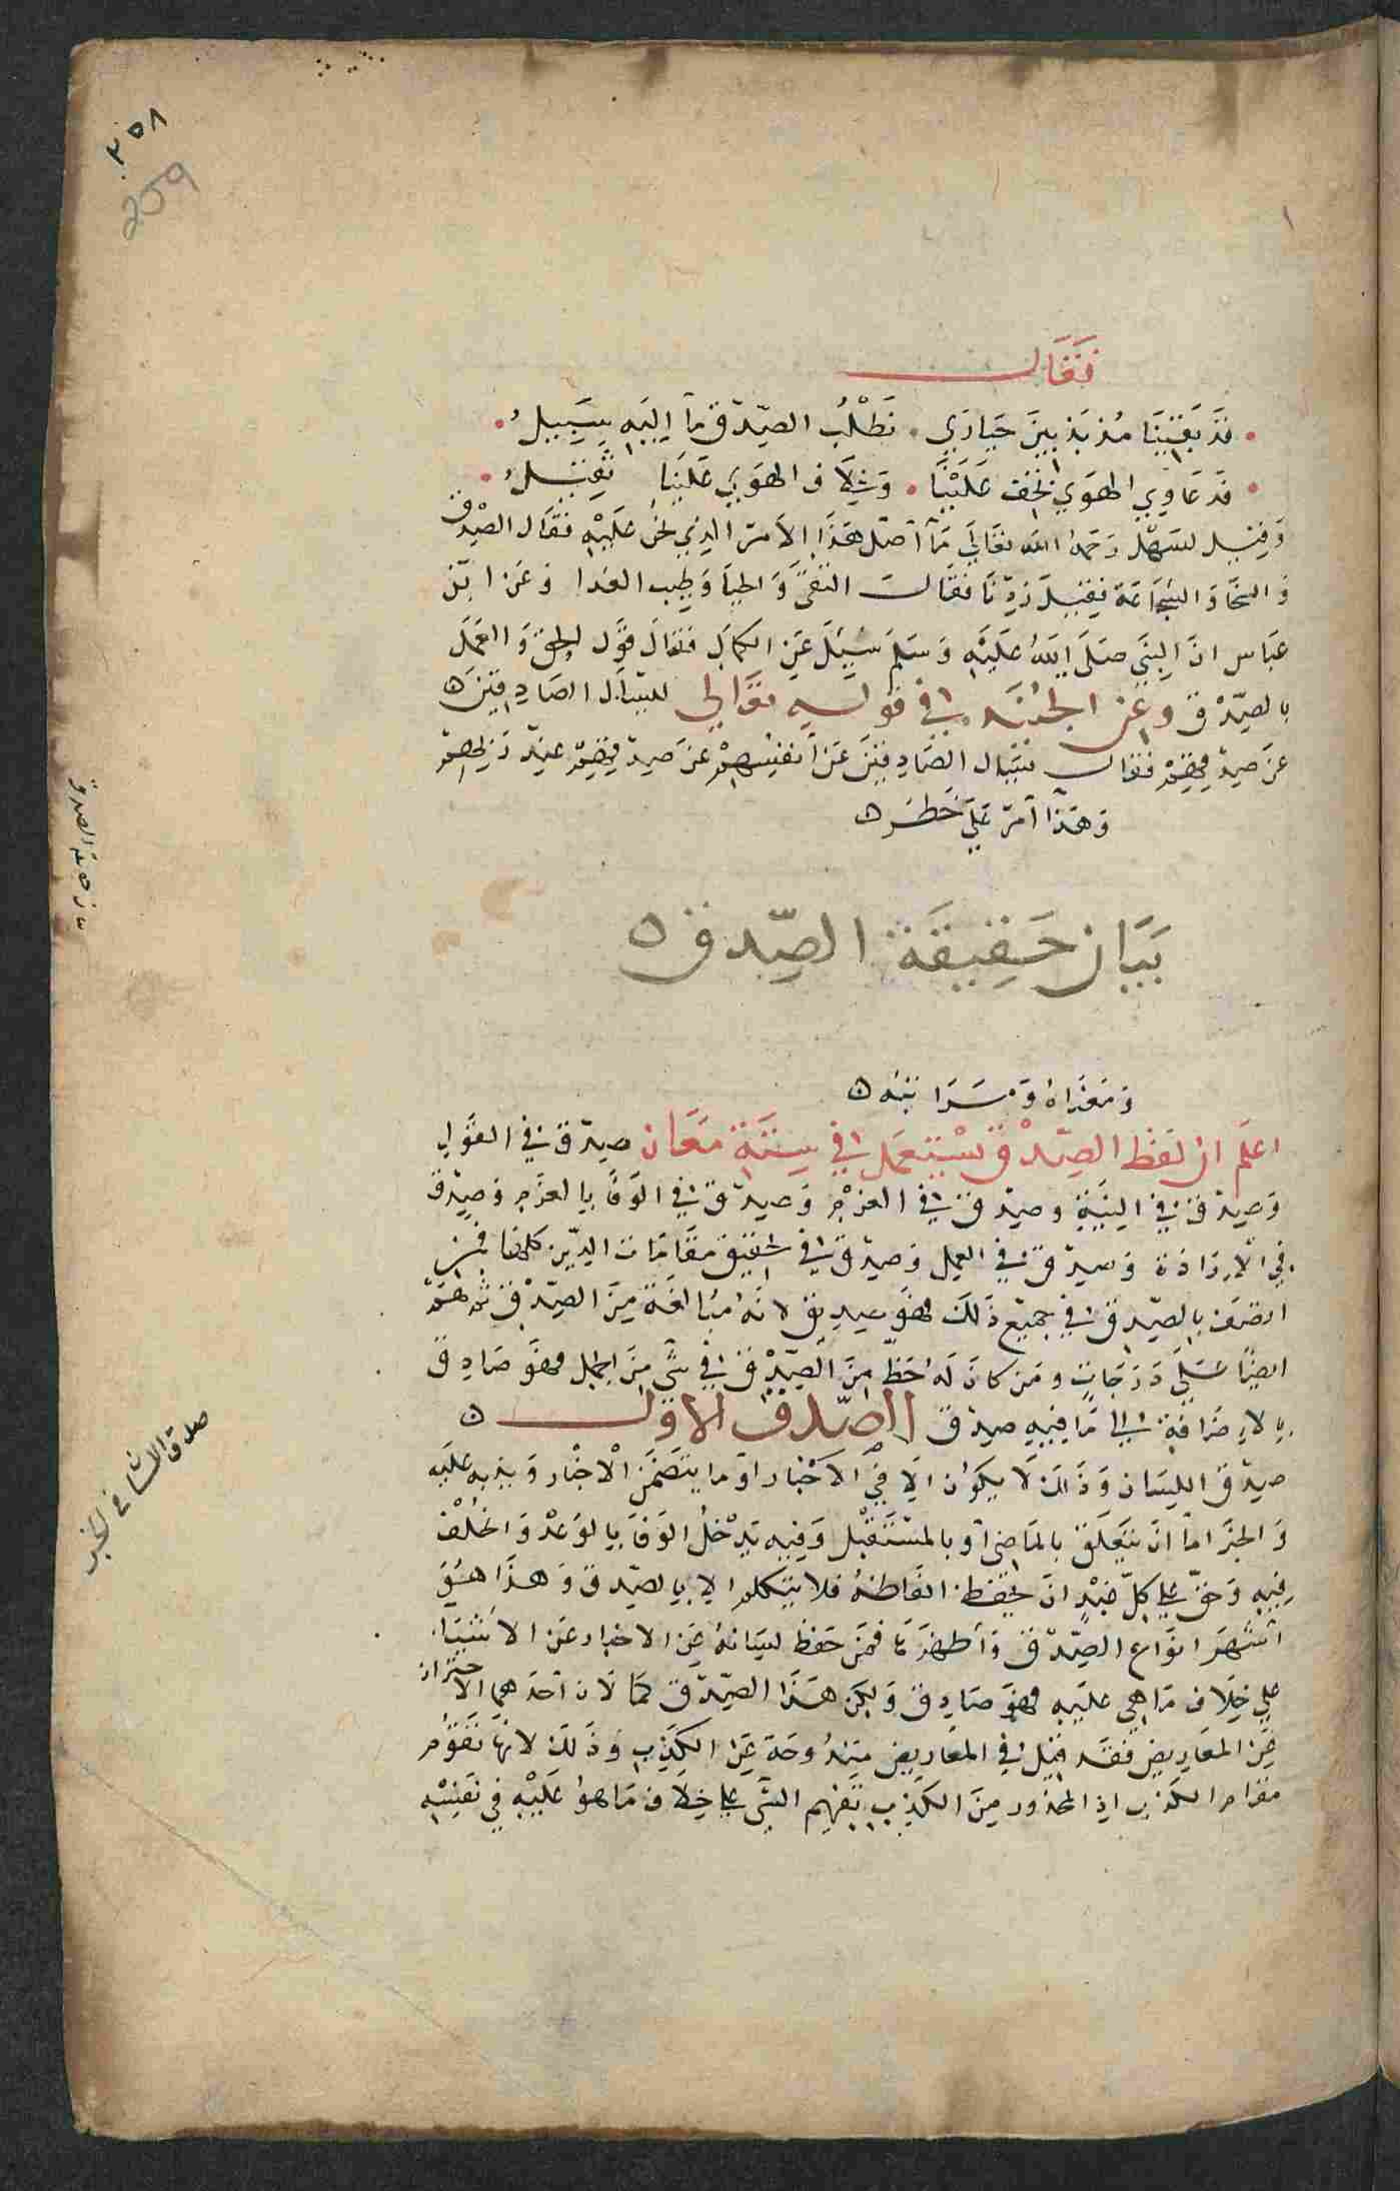 ٢٥٨
209
فَقَال
قَد بَقَيْنَا مُذبذبينَ حَيَارَي . نَطْلُب الصِّدق مَا إليَهِ سَبِيلُ .
فَدعَاوِي الهَوَي تخِف عَلَيْنَا . وَخِلَاف الهَوَي عَلَيَنَا ثَقِيْلُ .
وَقِيْل لسَهْل رَحمهُ الله تعَالَي مَا أصْل هَذَا الأمر الذي نحْنُ عَلَيْهِ فقَال الصْدق
وَالسخَا وَالشجَاعَة فقيْلَ زِدْنَا فقَال التقَي وَالحيَا وَطِيب الغدا وَعَن ابْن
عَباس انَ النَبَي صَلَي اللهُ عَلَيْهِ وَسَلمَ سُيلَ عَن الكمَال فقالَ قوَل الحق وَالعَمَل
بالصِّدْق وعَن الجُنَيد في قولهِ تعَالي لَيسْأل الصَادِقينَ ه
عنَ صدقِهِمْ فقال يسْال الصَادِقينَ عَن أنفسْهِمْ عنَ صدقِهمْ عندَ رَبِّهمْ
وَهَذا أمرْ عَلَي خَطَر ه
بَيَان حَقِيقَة الصِّدق ه
وَمَعْنَاهُ وَمَرَاتبهُ ه
اعلَم ان لفَظ الصِّدْق يسْتَعمَل في سِتَةِ مَعَان صِدق في القوَلِ
وَصِدْق في النِيَةِ وصدق في العزْمِ وَصِدق في الوَفا بالعزَم وَصِدْق
في الأرَادَة وَصدق في العمل وَصدق في تحْقيق مَقَامَات الدِّين كلهَا فمن
اتصَف بالصِّدق في جمَيْع ذَلكَ فهوَ صدِيق لانهُ مُبَالغَة مِنَ الصِّدْق ثم هُمْ
ايضًا عَلَي دَرَجَاتٍ ومَن كانَ لَهُ حَظ مِنَ الصِّدْق في شَي مِنَ الجمل فهوَ صَادِق
بالاِضَافةِ الي مَا فِيهِ صدق الصِّدق الاول ه
صِدق اللسَان وَذَلكَ لَا يَكوُن الَا في الاَخْبار اوْ ما يتَضَمَن الْاخْبار وَينبه عَلَيْه
وَالخبَر اما انَ يتَعَلق بالمَاضِي أو بالمسْتَقبْل وَفِيهِ يَدْخلُ الوَفا بِالوَعدْ وَالخُلْف
فِيهِ وَحَق عَلي كلّ عَبْدٍ ان يحْفظ الفَاظهُ فلا يتَكلم الا بِالصِّدق وَهَذَا هُوَ
أشْهَرَ انوَاع الصِّدق وَأظهَرَهَا فمَن حَفظ لسَانهُ عَن الاخبار عَن الاشْيَا
عَلي خِلَاف مَا هِي عليَهِ فهوَ صَادِق وَلكِن هَذَا الصِّدق كمَالان أحَدهمَا الاحتراز
عَن المعَاريِض فقَد قيْل في المعَارِيض مَندُوحَة عَن الكِذِبِ وَذَلكَ لانهَا تقوُم
مقام الكذب اذ المحذور مِنَ الكذِب تفهِيم الشَي عَلي خِلَاف مَا هوُ عَلَيْهِ في نَفْسِهِ
صدق اللسان في الخبر